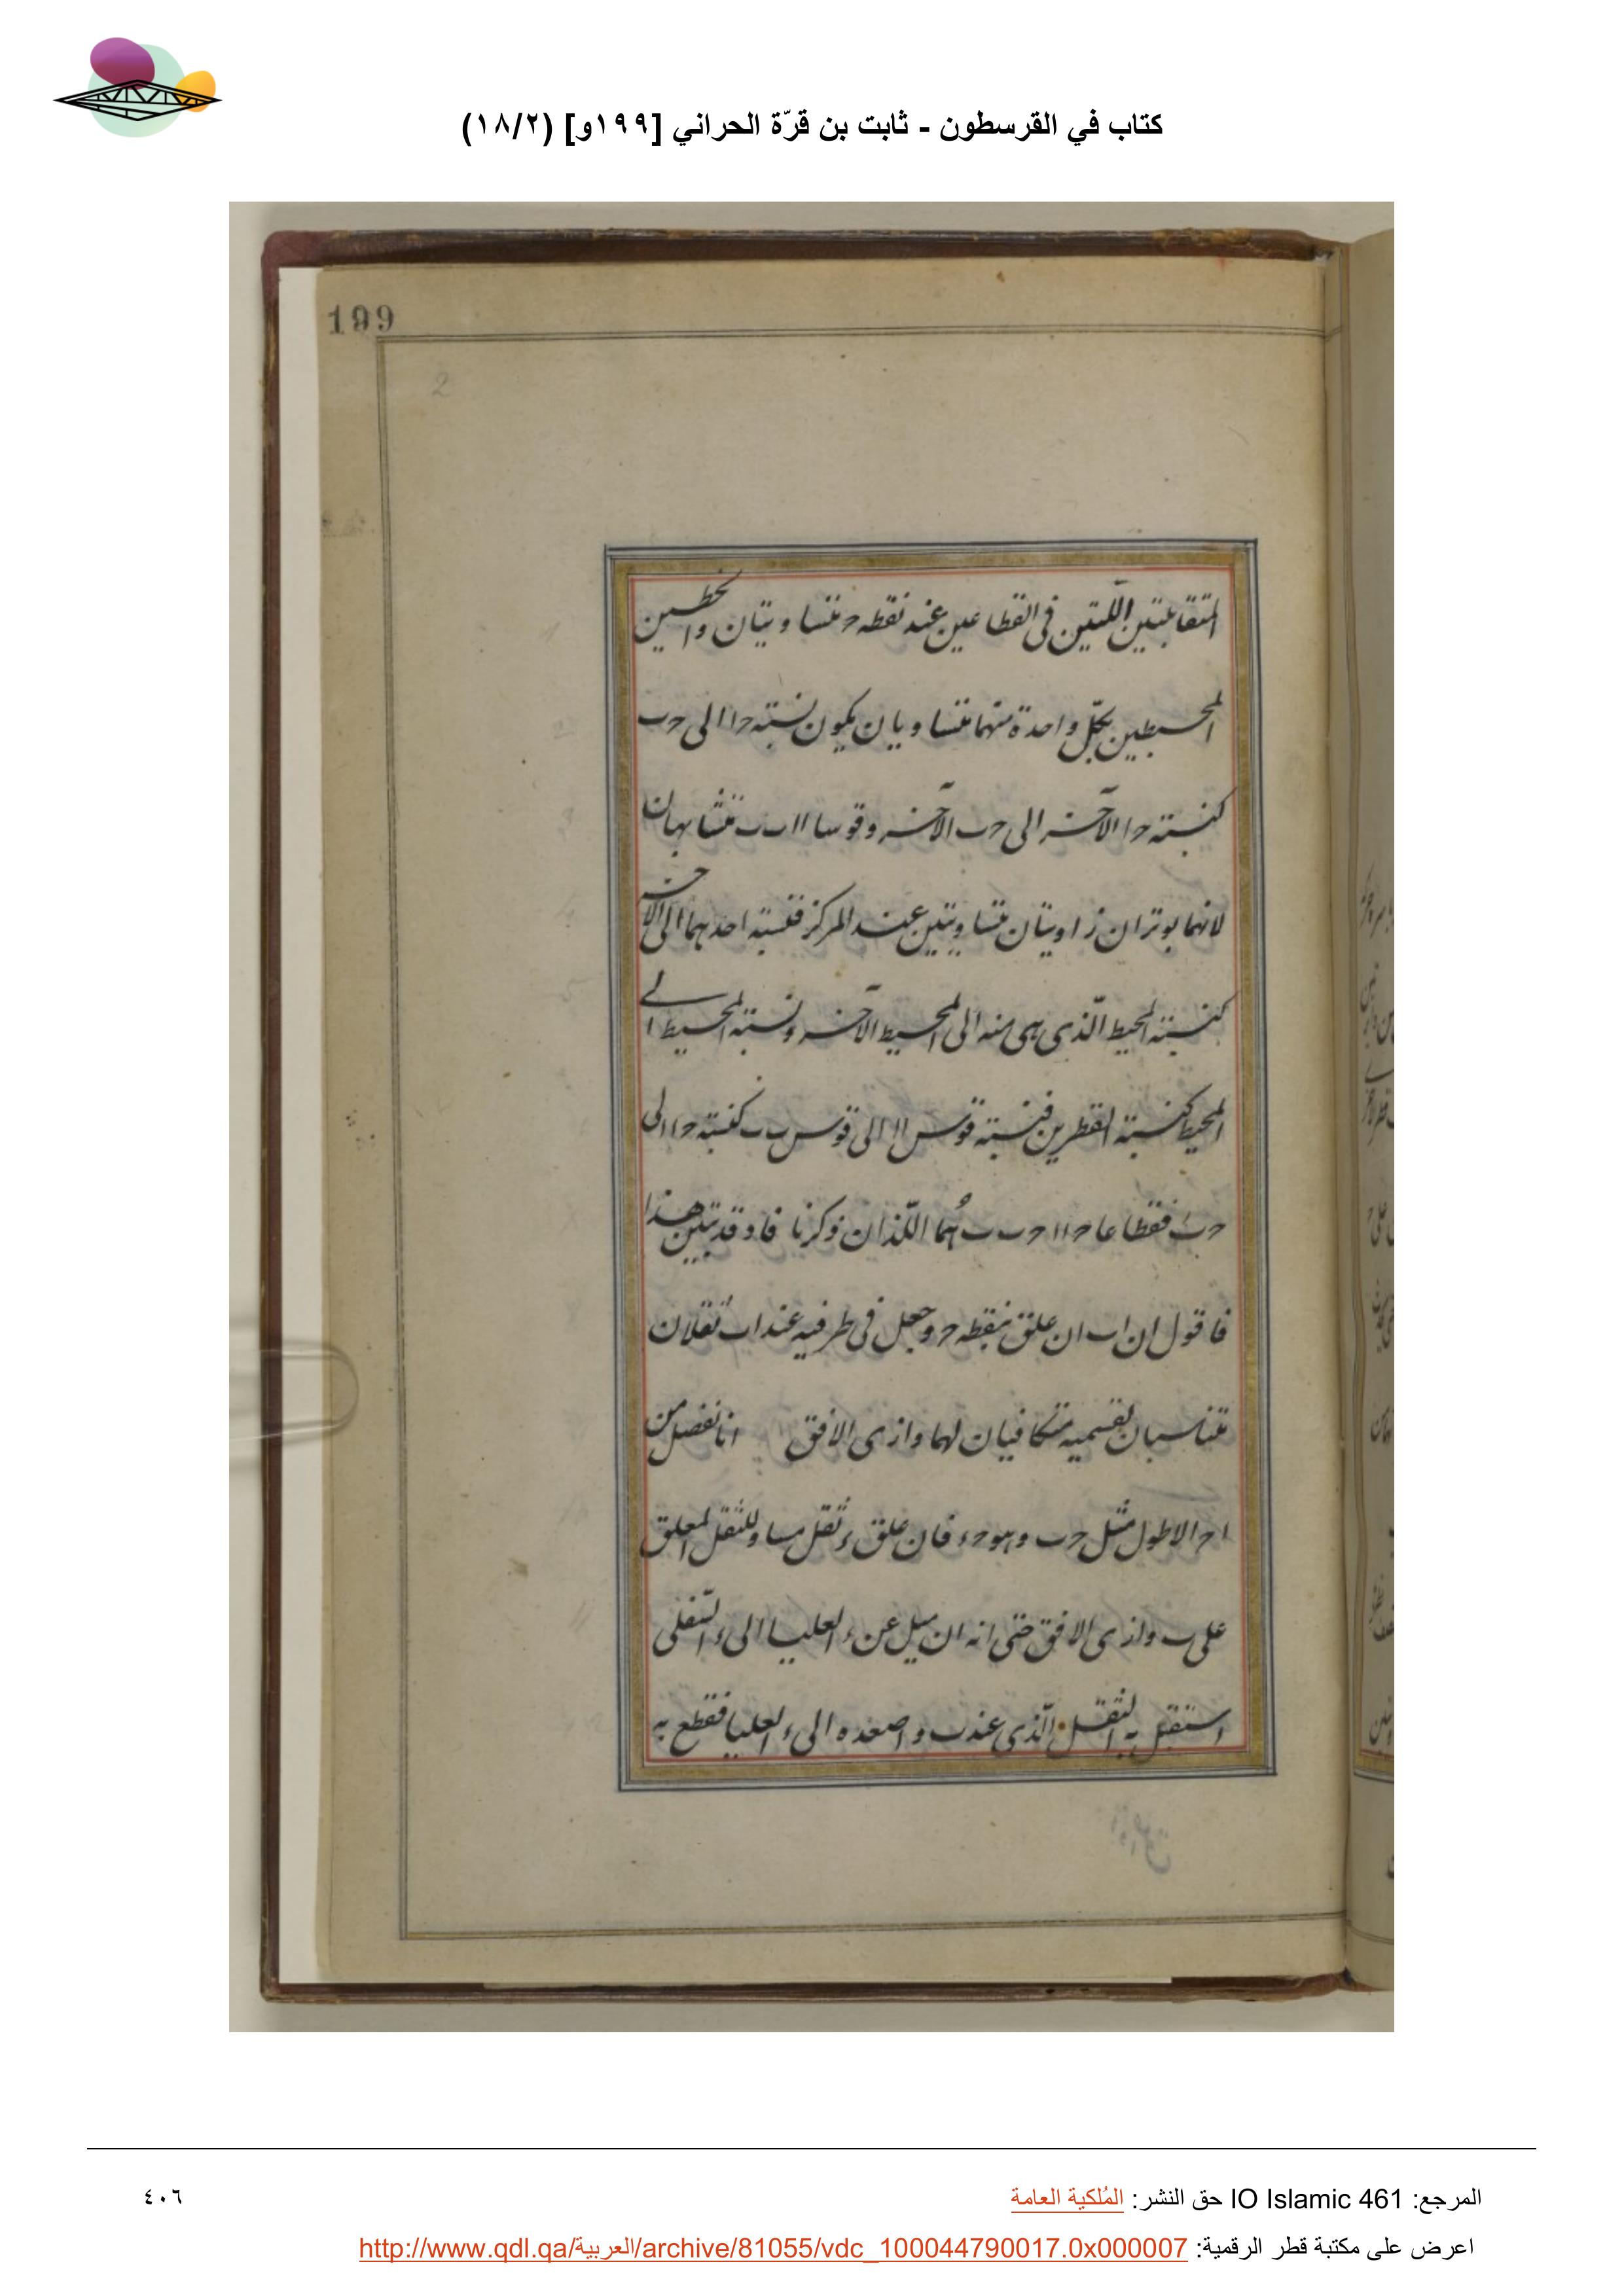 كتاب في القرسطون - ثابت بن قرّة الحراني [١٩٩و] (١٨/٢)
199
2
المتقابلتين اللّتين فى القطاعين عند نقطه ح متساويتان والخطين
المحيطين بكلّ واحدة منهما متساويان يكون نسبته ح ا الى ح ب
كنسبته ح ا الآخر الى ح ب الآخر وقوسا ا ا ب ب متشابهان
لانهما يوتران زاويتان متساويتين عند المركز فنسبته احدهما الى الاخر
كنسبته المحيط الّذى هى منه الى المحيط الآخر ونسبته المحيط الى
المحيط كنسبته القطرين فنسبته قوس ا ا الى قوس ب ب كنسبته ح ا الى
ح ب فقطاعا ح ا ا ح ب ب هُما اللّذان ذكرنا فاذ قد تبين هذا
فاقول ان ا ب ان علق بنقطه ح وجعل فى طرفيه عند ا ب ثقلان
متناسبان لقسميه متكافيان لهما وازى الافق انا نفصل من
ا ح الاطول مثل ح ب وهو ح ء فان علق ء ثقل مساو للثقل المعلق
على ب وازى الافق حتى انه ان ميل عن ء العليا الى ء السّفلى
استقبل به الثقل الّذى عند ب واصعده الى ء العليا فقطع به
المرجع: IO Islamic 461 حق النشر: المُلكية العامة
٤٠٦
اعرض على مكتبة قطر الرقمية: http://www.qdl.qa/العربية/archive/81055/vdc_100044790017.0x000007